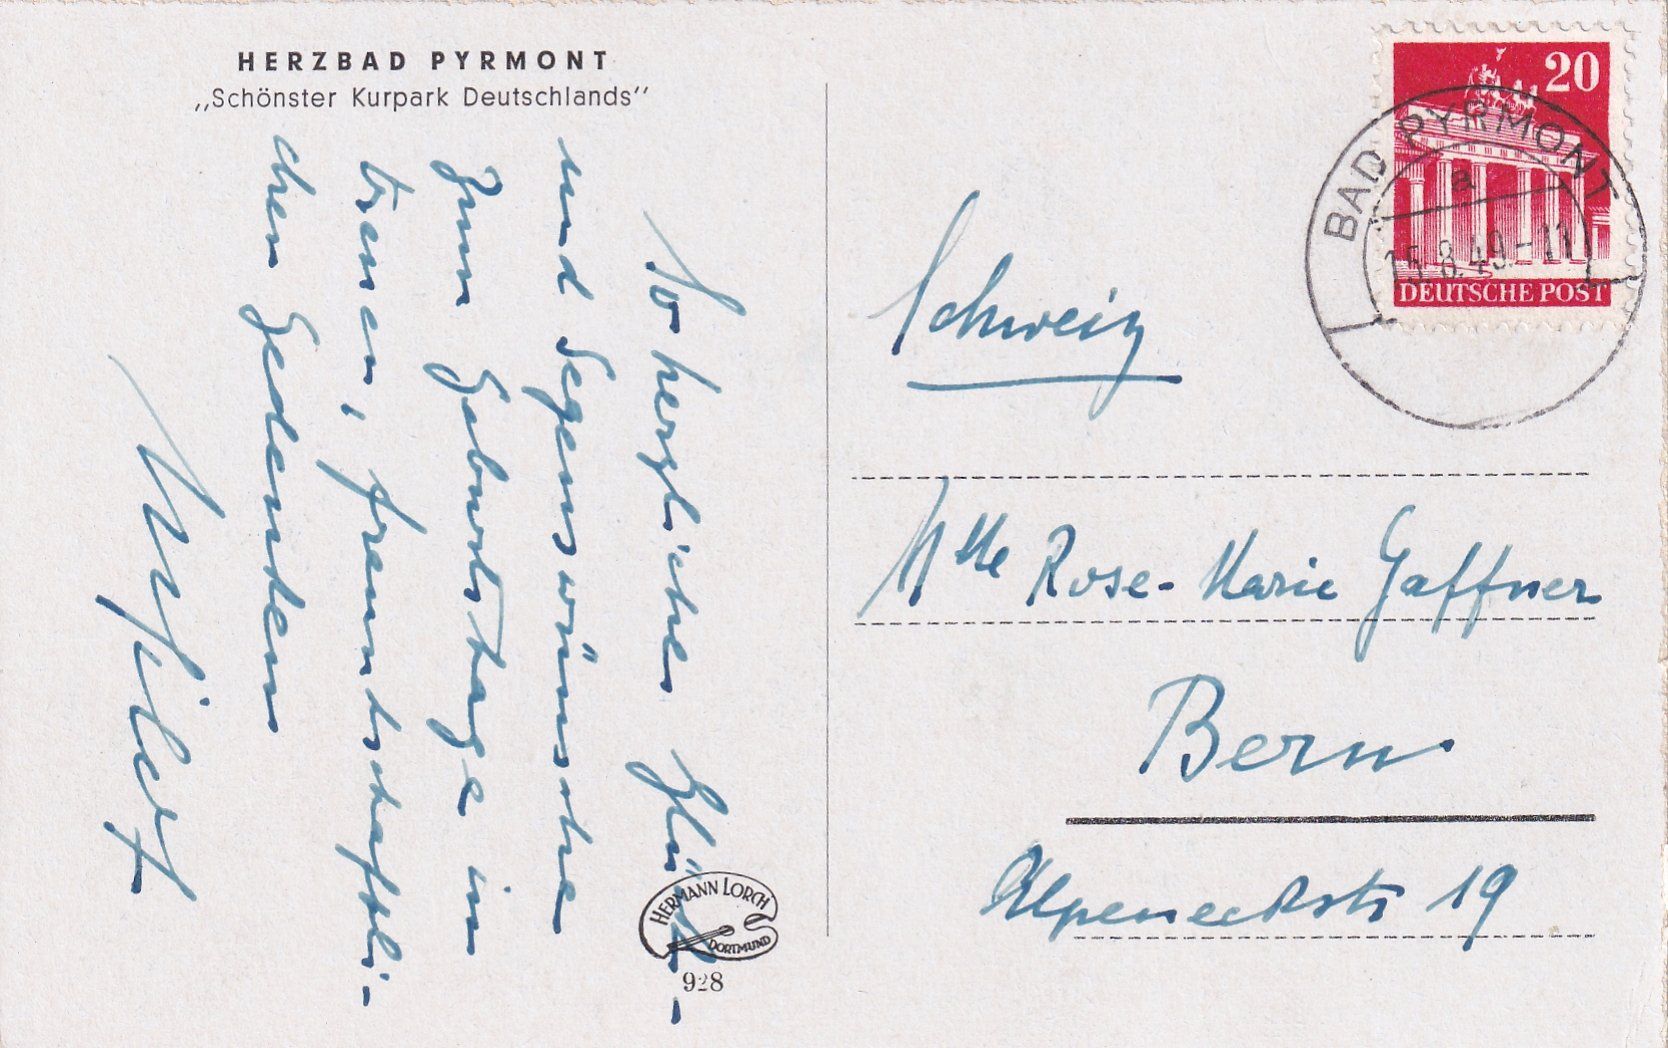 HERZBAD PYRMONT
„Schönster Kurpark Deutschlands"
So herzliche Glück-
und Segenswünsche
zum Geburtstage in
treuem, freundschaftli-
chen Gedenken
HERMANN LORCH
DORTMUND
928
20
DEUTSCHE POST
BAD PYRMONT
a
15.8.49.-11
Schweiz
Mlle Rose-Marie Gaffner
Bern
Alpeneckstr 19